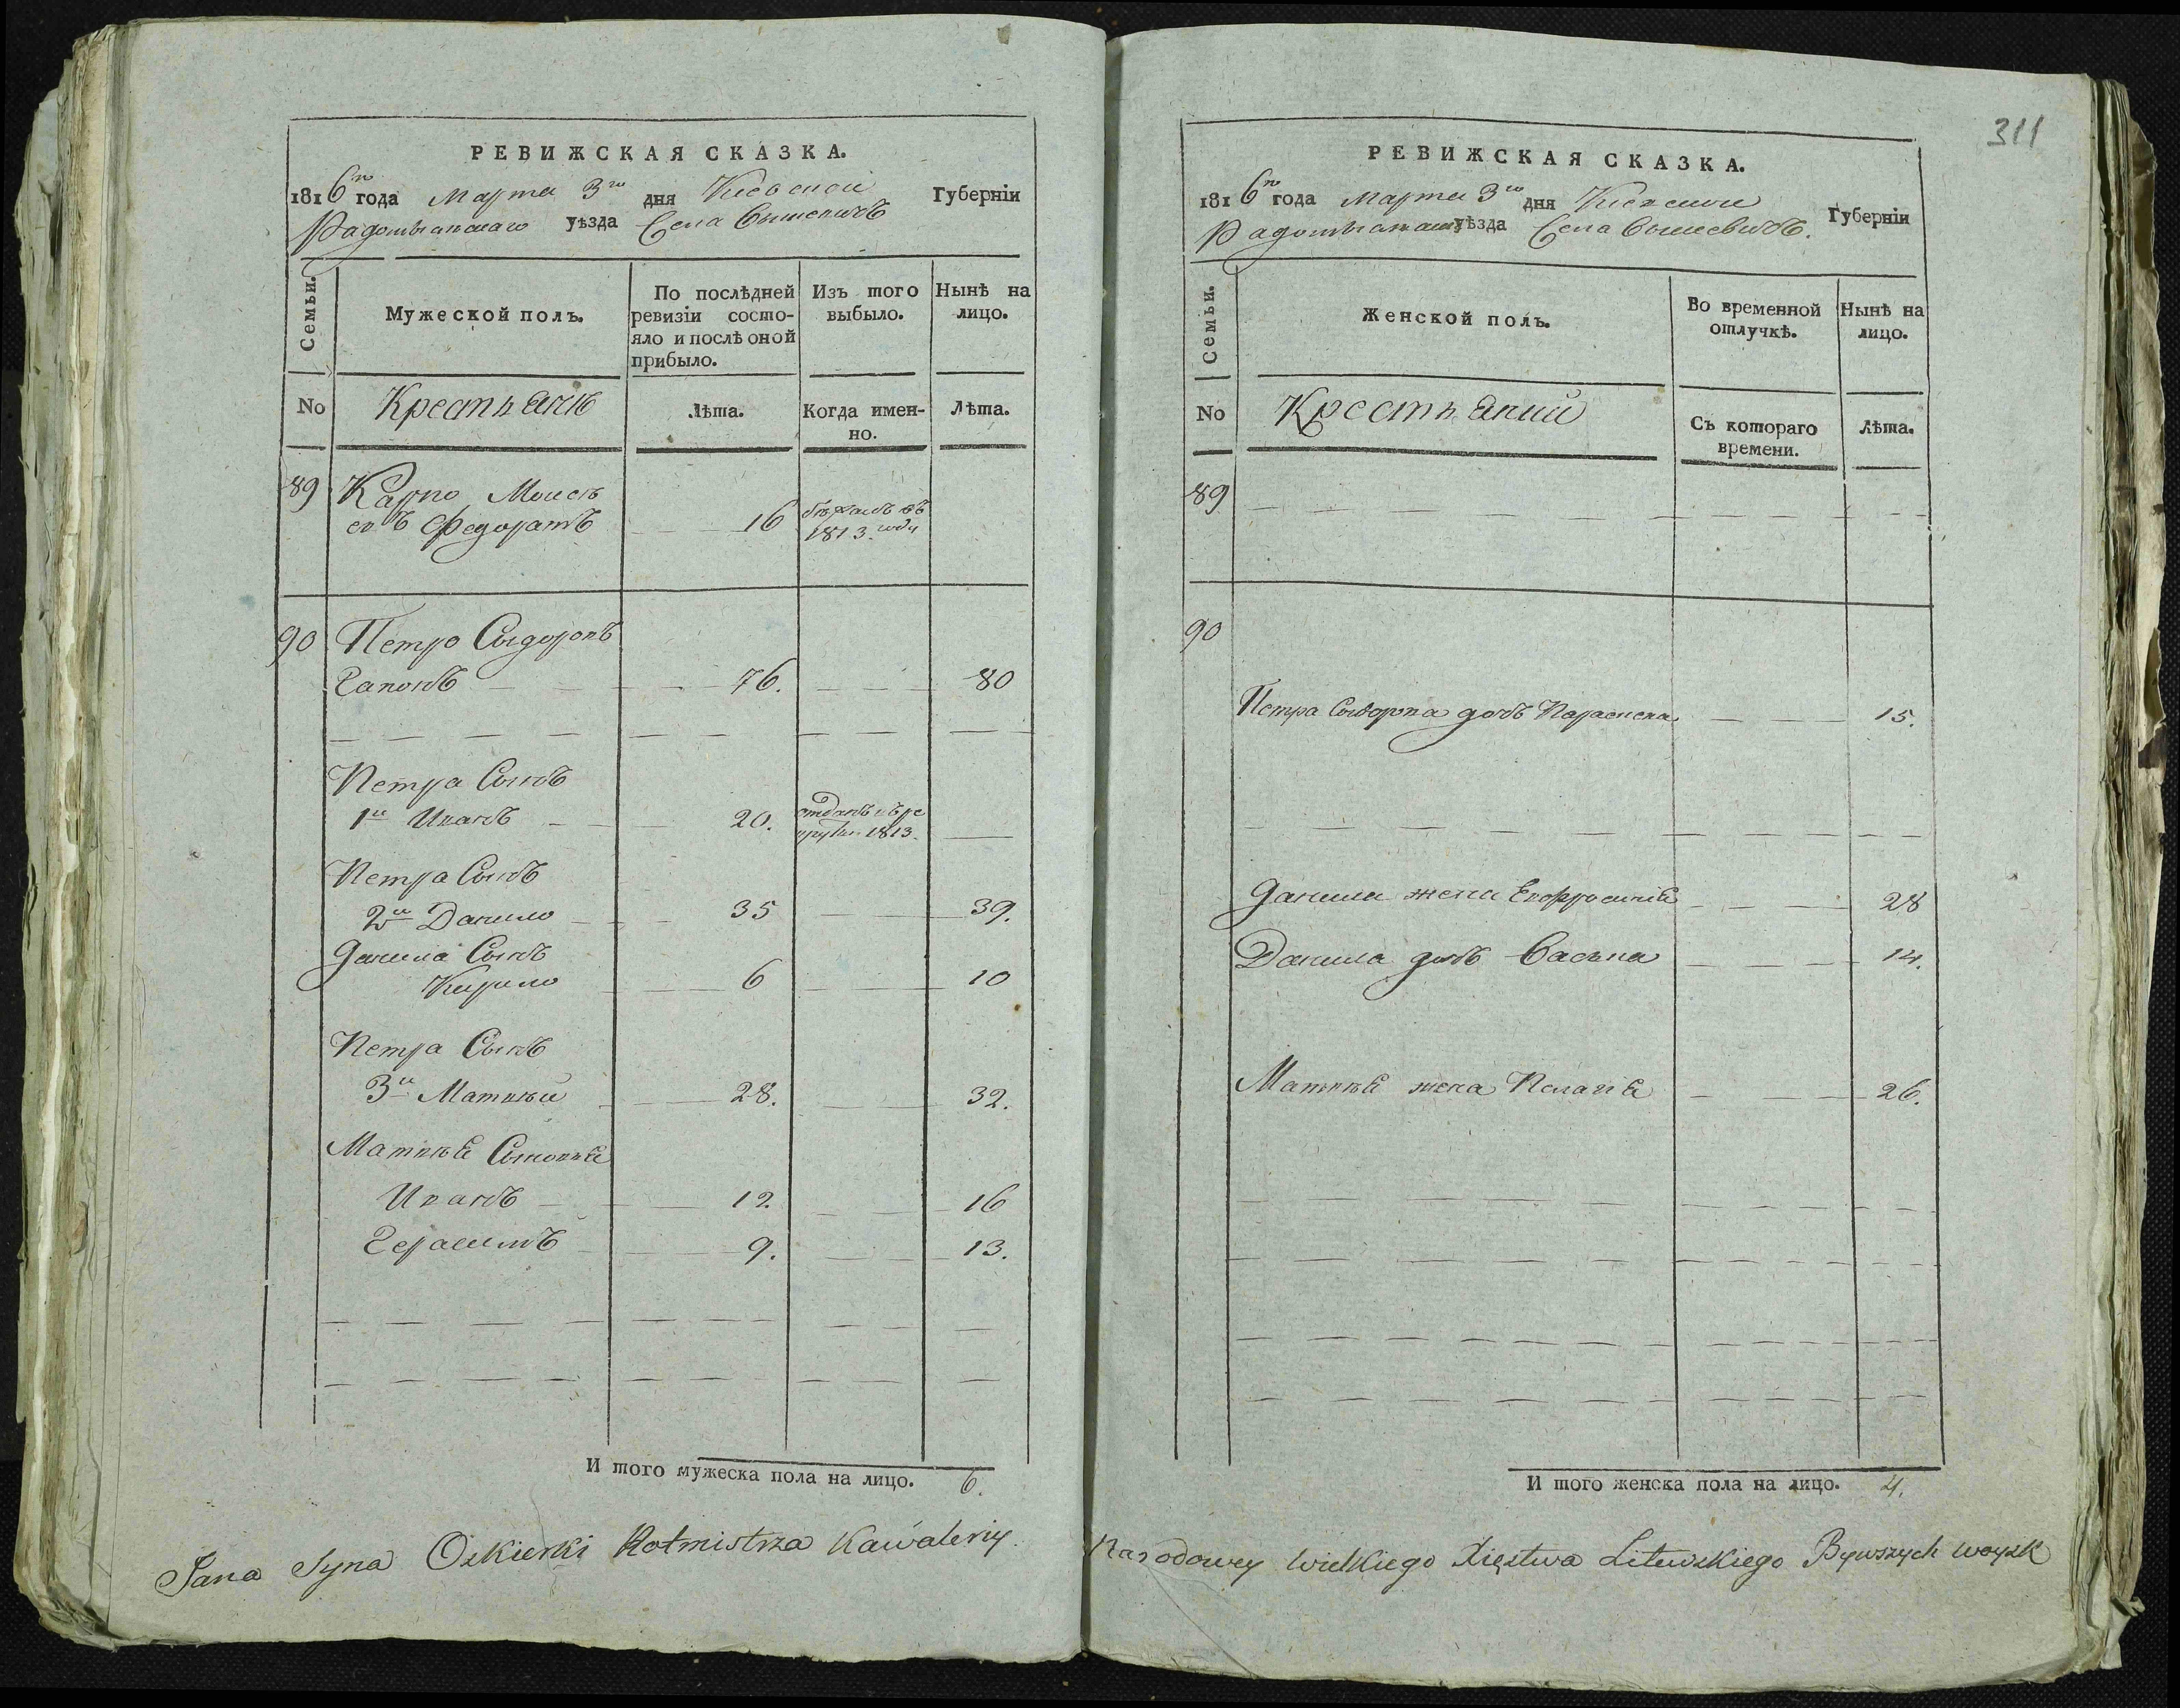 РЕВИЖСКАЯ СКАЗКА.
1816го года Марта 3го дня Киевской Губерніи
Радомысльскаго уѣзда Села
Семьи.
Мужеской полъ.
По послѣдней ревизіи состояло и послѣ оной прибыло.
Изъ того выбыло.
Нынѣ на лицо.
No Крестьянѣ Лѣта. Когда именно. Лѣта.
89 Карпо Моисѣ
евъ Федоратъ 16 бѣжалъ въ
1813. году
90 Петро Сыдоровъ
Гапонъ 76. 80
Петра Сынъ
1й Иванъ 20. отданъ въ ре
круты 1813.
Петра Сынъ
2й Данило 35 39.
Данила Сынъ
Кирило 6 10
Петра Сынъ
3й Матвѣй 28. 32.
Матвѣя Сыновья
Иванъ 12. 16
Герасимъ 9. 13.
И того мужеска пола на лицо. 6.
Jana Syna Oskierki Rotmistrza Kawaleriy.
311
РЕВИЖСКАЯ СКАЗКА.
1816го года Марта 3го дня Киевской Губерніи
Радомысльскаго уѣзда Села
Семьи.
Женской полъ.
Во временной отлучкѣ.
Нынѣ на лицо.
No Съ котораго времени. Лѣта.
89
90
Петра Сыдорова дочь Параскева 15.
Данила жена Евфросинія 28
Данила дочь Васьна 14.
Матвѣя жена Пелагія 26.
И того женска пола на лицо. 4.
Narodowey Wielkiego Xięstwa Litewskiego Bywszych woysk